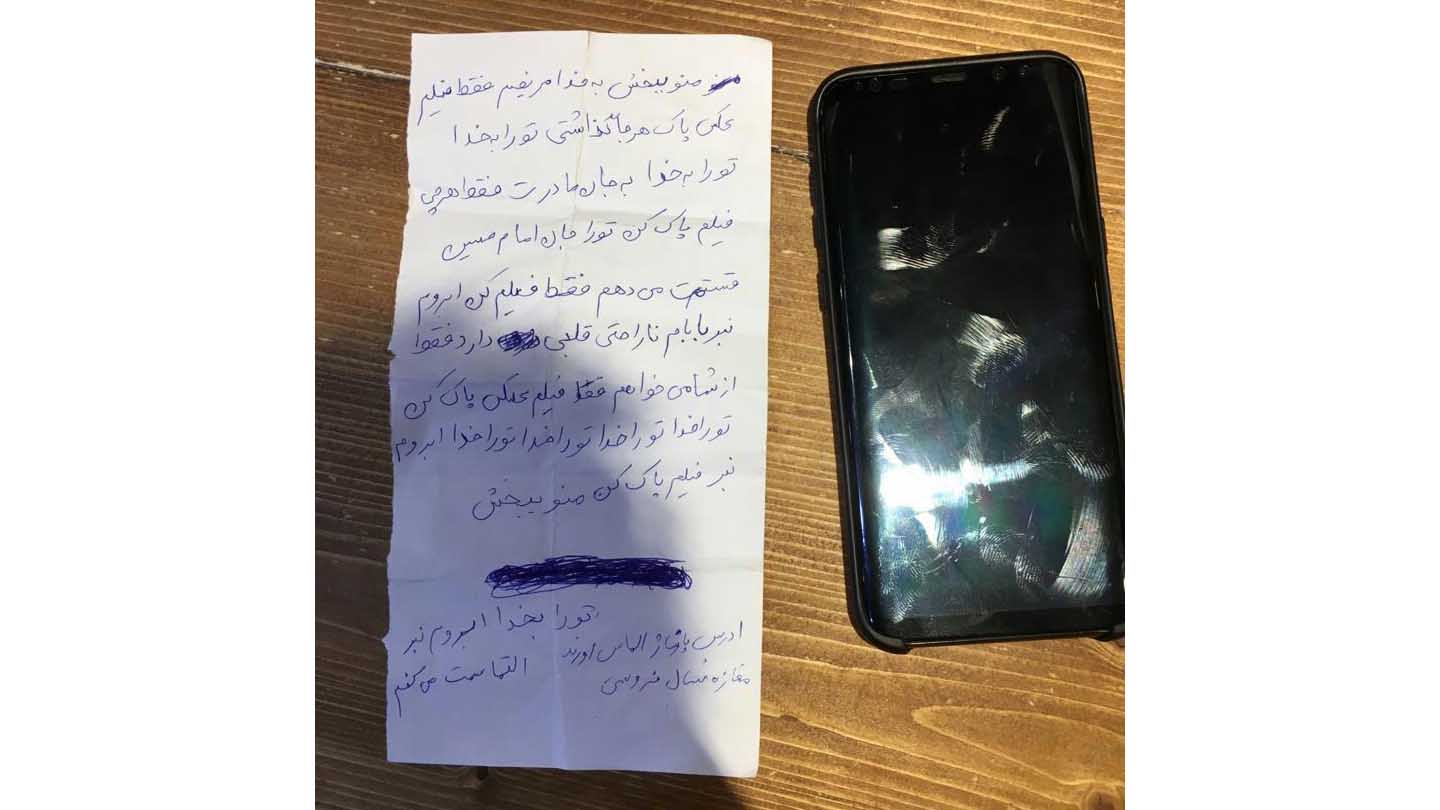 منو ببخش به خدا مریضم فقط فیلم
عکس پاک هرجا گذاشتی تورا بخدا
تورا به خدا به جان مادرت فقط هرچی
فیلم پاک کن تورا جان امام حسین
قسمت می دهم فقط فیلم کن ابروم
نبر بابام ناراحتی قلبی دارد فقط
از شما می خواهم فقط فیلم عکس پاک کن
تورا خدا تورا خدا تورا خدا تورا خدا ابروم
نبر فیلم پاک کن منو ببخش
تورا بخدا ابروم نبر
التماست می کنم
ادرس پاساژ الماس
مغازه شال فروشی